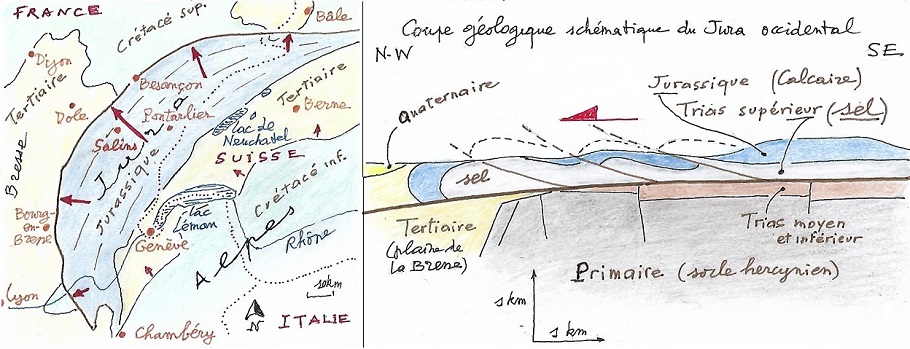 FRANCE
Crétacé sup.
Bâle
Dijon
Tertiaire
Besançon
Tertiaire
Berne
Dole
Pontarlier
Salins
lac de
Neuchatel
Jura
Jurassique
SUISSE
Bresse
Crétacé inf.
Bourg-
en-
Bresse
lac
Léman
Genève
Alpes
Rhône
Lyon
10km
N
ITALIE
Chambéry
Coupe géologique schématique du Jura occidental
N-W
SE
Quaternaire
Jurassique (Calcaire)
Trias supérieur (sel)
sel
Tertiaire
(plaine de
la Bresse)
Trias moyen
et inférieur
Primaire (socle hercynien)
1 km
1 km